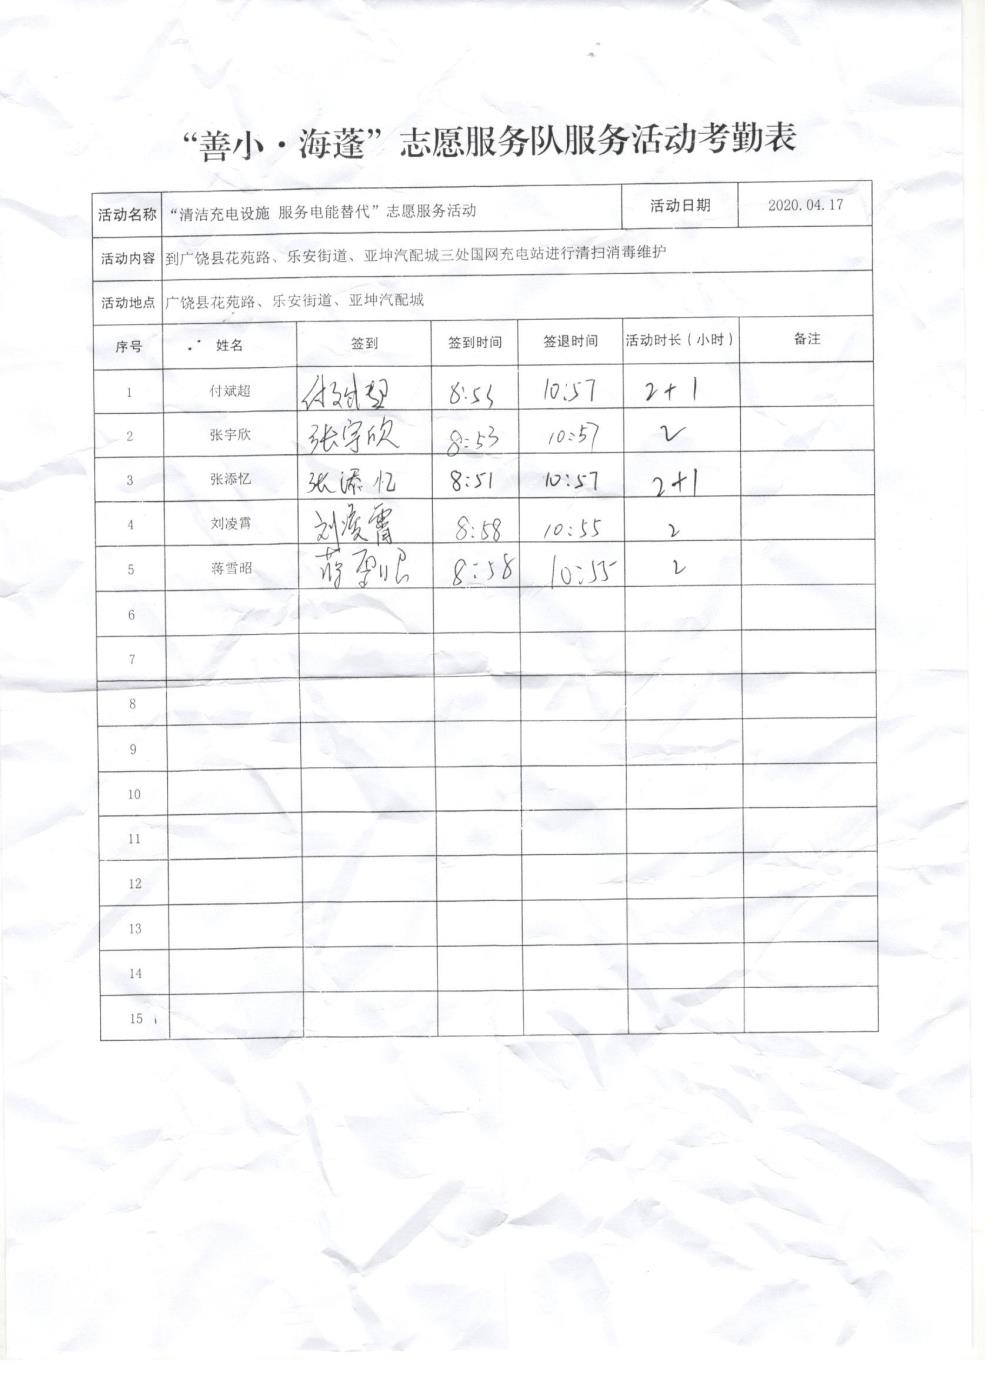 “善小·海蓬”志愿服务队服务活动考勤表
活动名称 “清洁充电设施 服务电能替代”志愿服务活动 活动日期 2020.04.17
活动内容 到广饶县花苑路、乐安街道、亚坤汽配城三处国网充电站进行清扫消毒维护
活动地点 广饶县花苑路、乐安街道、亚坤汽配城
序号 姓名 签到 签到时间 签退时间 活动时长（小时） 备注
1 付斌超 付斌超 10:57 2+1
2 张宇欣 张宇欣 8:53 10:57 2
3 张添忆 张添忆 8:51 10:57 2+1
4 刘凌霄 刘凌霄 8:58 10:55 2
5 蒋雪昭 蒋雪昭 8:58 10:55 2
6
7
8
9
10
11
12
13
14
15